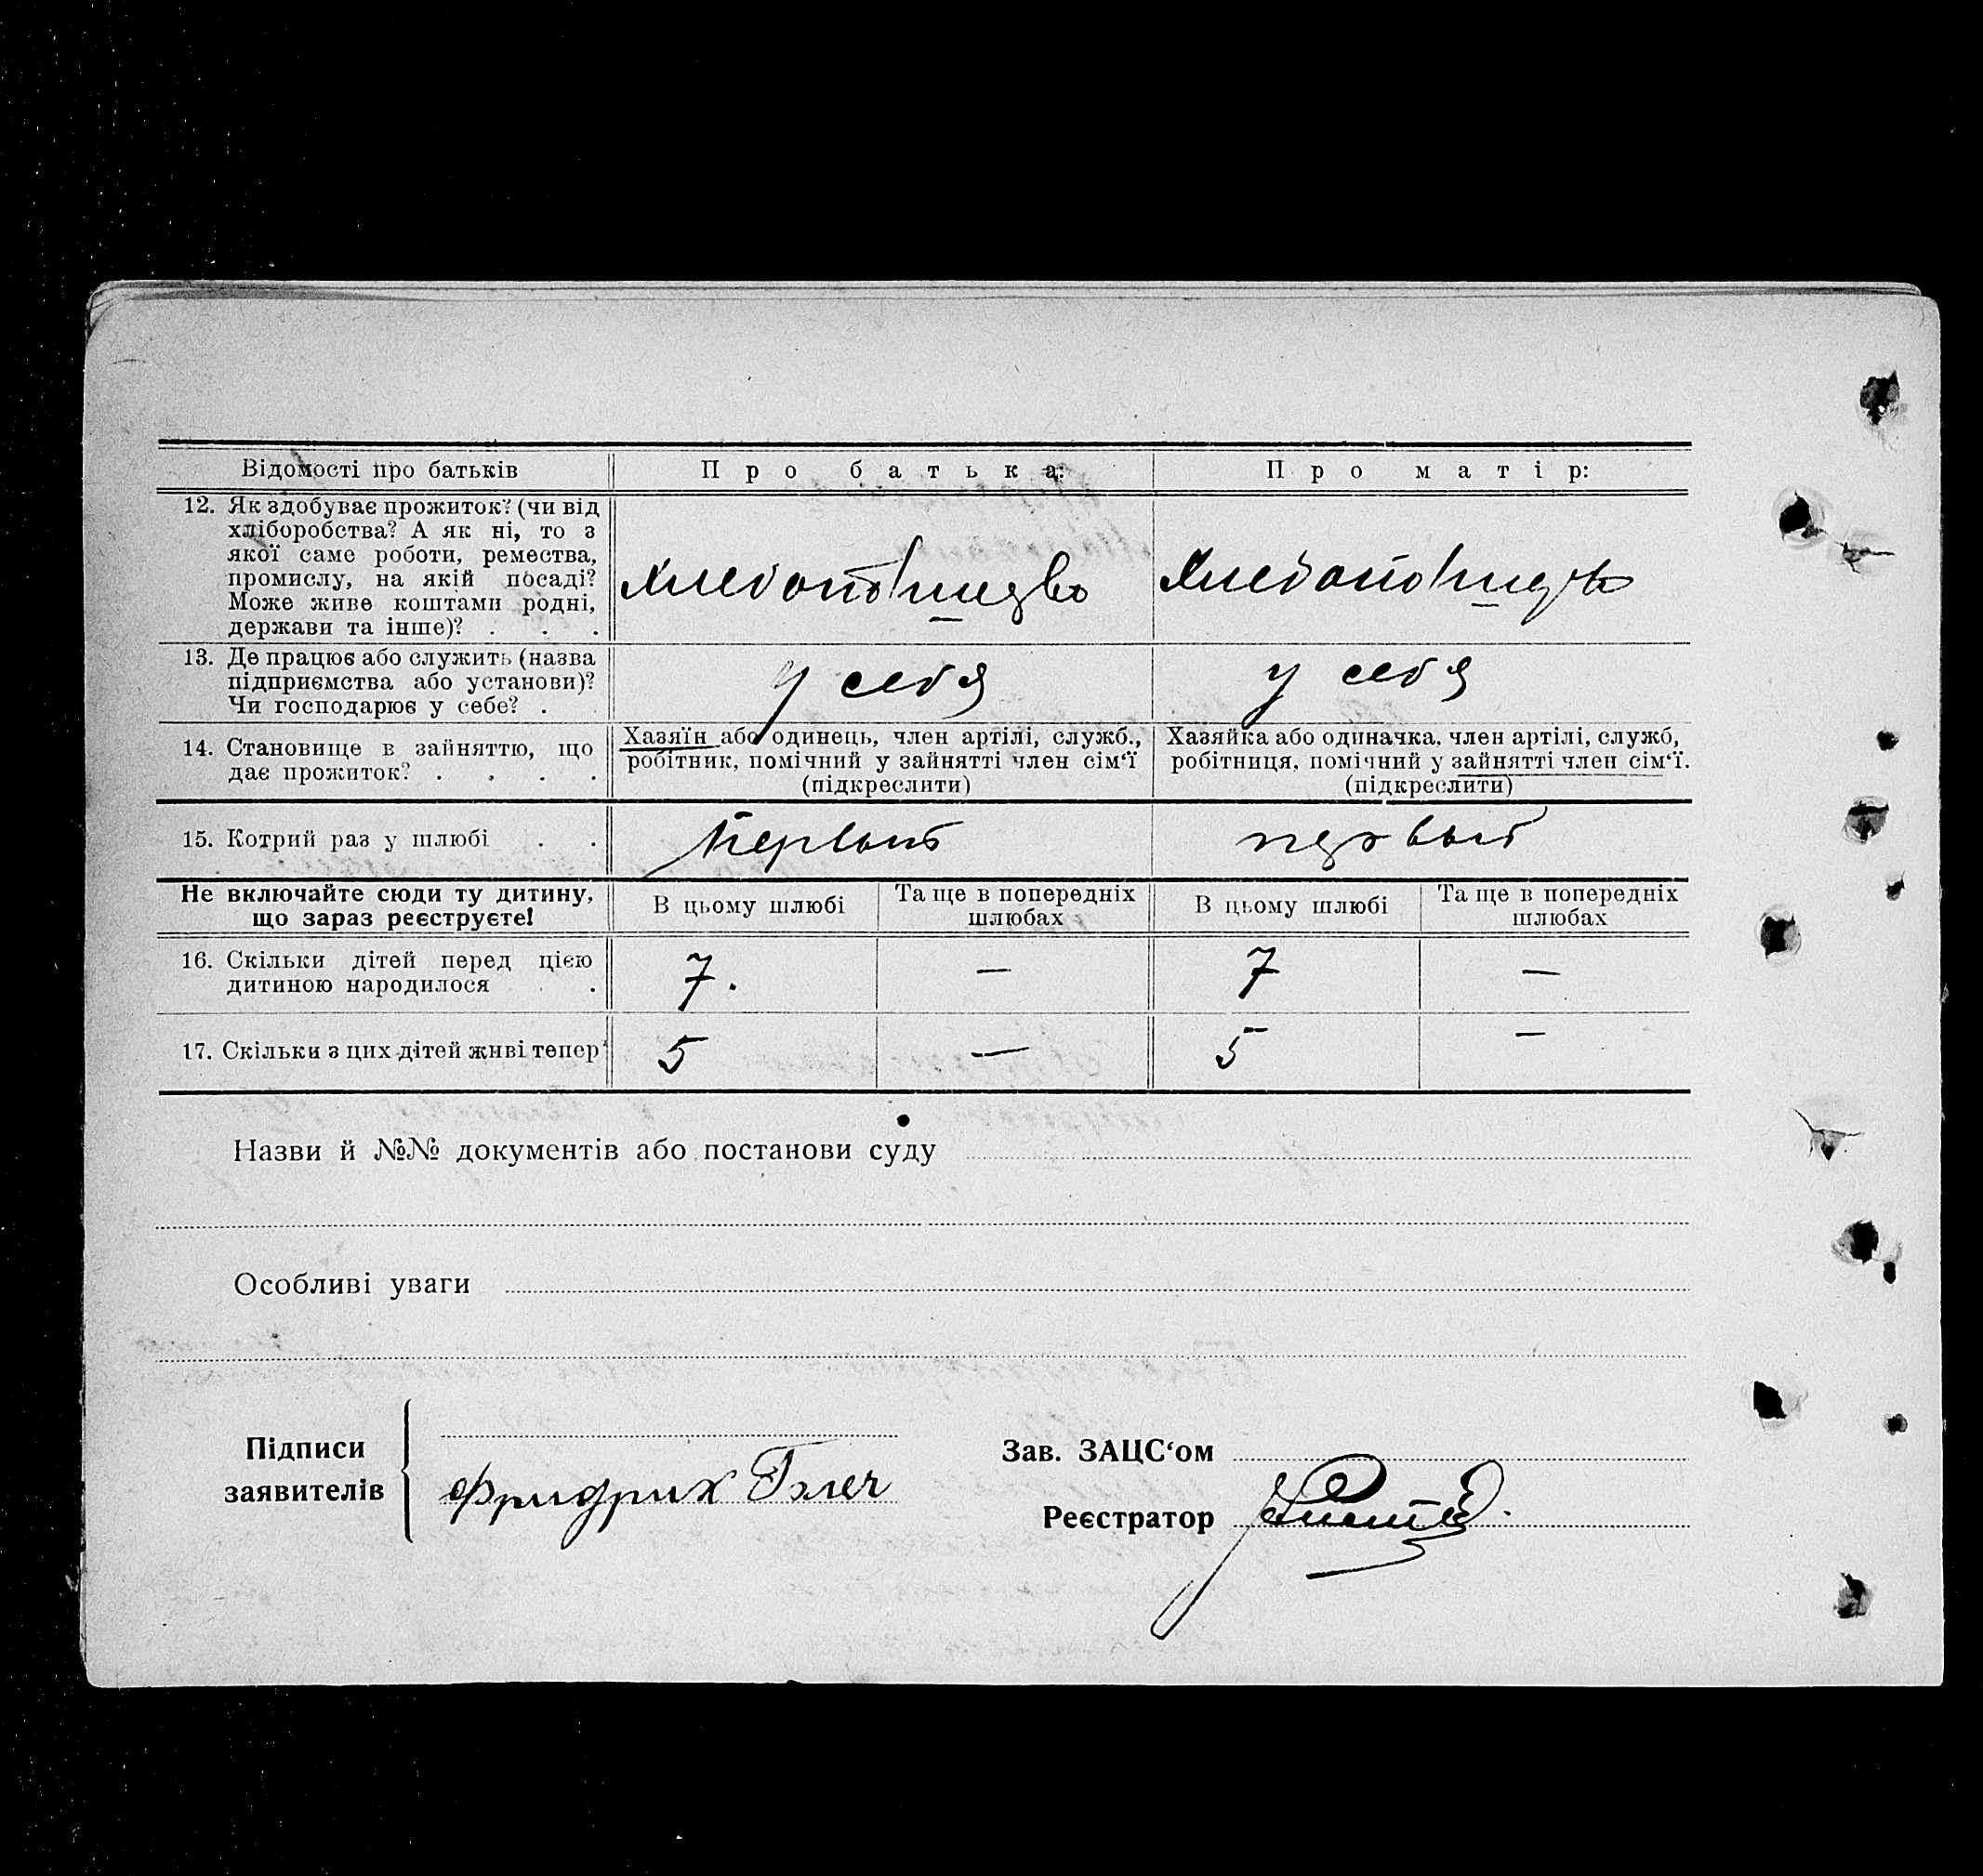 Відомості про батьків
Про батька:
Про матір:
12. Як здобуває прожиток? (чи від
хліборобства? А як ні, то з
якої саме роботи, ремества,
промислу, на якій посаді?
Може живе коштами родні,
держави та інше)? . . .
13. Де працює або служить (назва
підприємства або установи)?
Чи господарює у себе? .
у себя
у себя
14. Становище в зайняттю, що
дає прожиток? . . . .
Хазяїн або одинець, член артілі, служб.,
робітник, помічний у зайнятті член сім'ї
(підкреслити)
Хазяйка або одиначка, член артілі, служб,
робітниця, помічний у зайнятті член сім'ї.
(підкреслити)
15. Котрий раз у шлюбі . .
первый
первый
Не включайте сюди ту дитину,
що зараз реєструєте!
В цьому шлюбі
Та ще в попередніх
шлюбах
В цьому шлюбі
Та ще в попередніх
шлюбах
16. Скільки дітей перед цією
дитиною народилося . .
7.
—
7
—
17. Скільки з цих дітей живі тепер
5
—
5
—
Назви й №№ документів або постанови суду
Особливі уваги
Підписи
заявителів
Фридрих Гэлеч
Зав. ЗАЦС'ом
Реєстратор